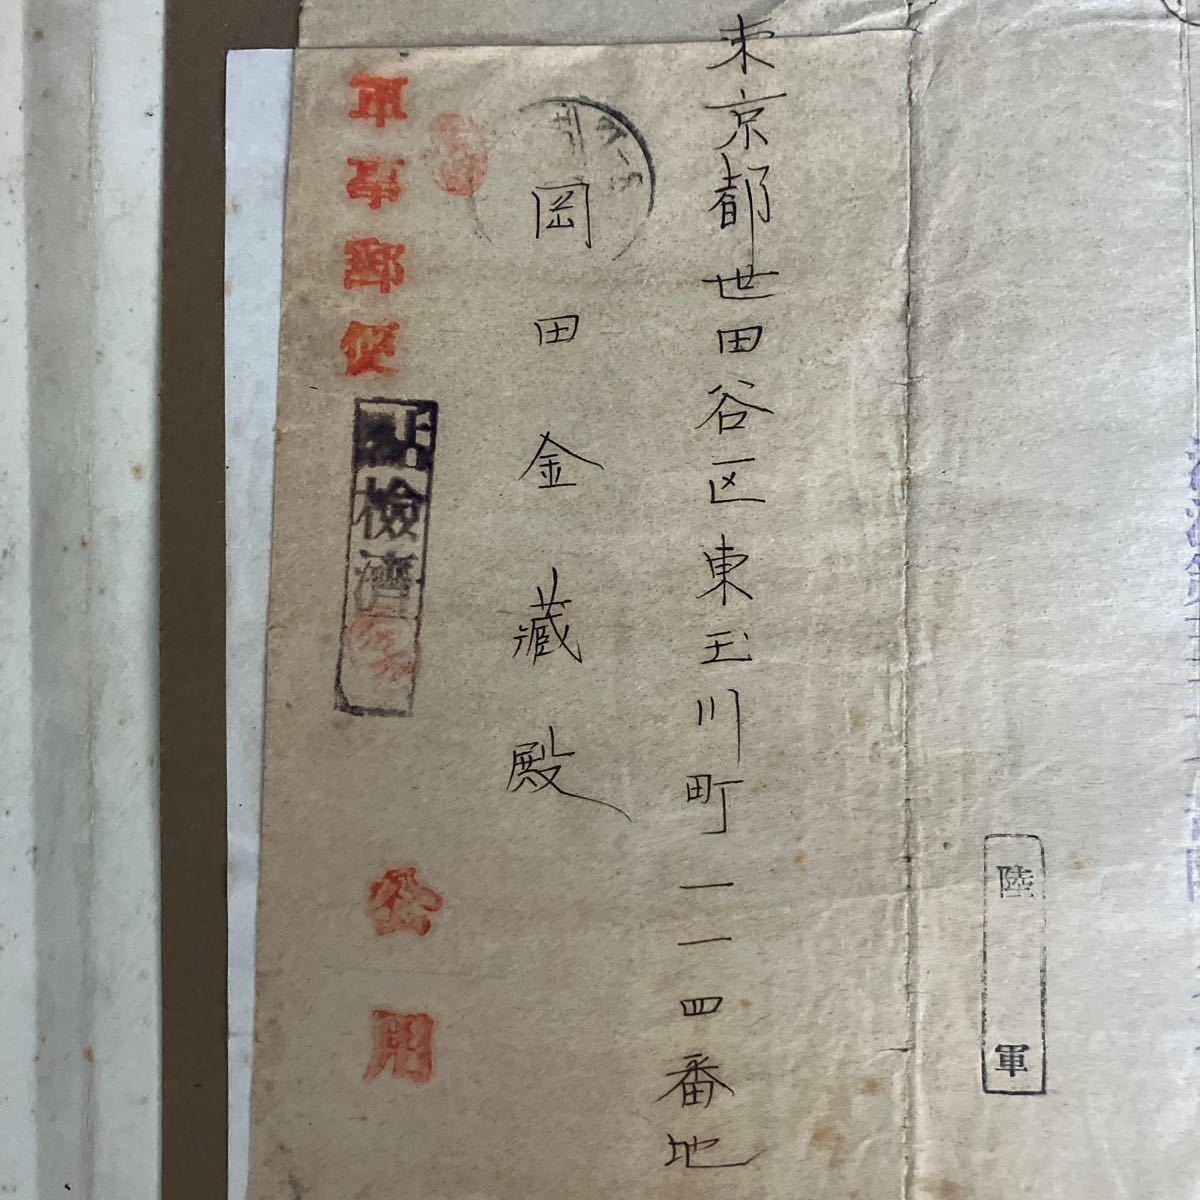 東京都世田谷区東玉川町一一四番地
岡田金蔵殿
軍事郵便
点検濟
公用
陸軍